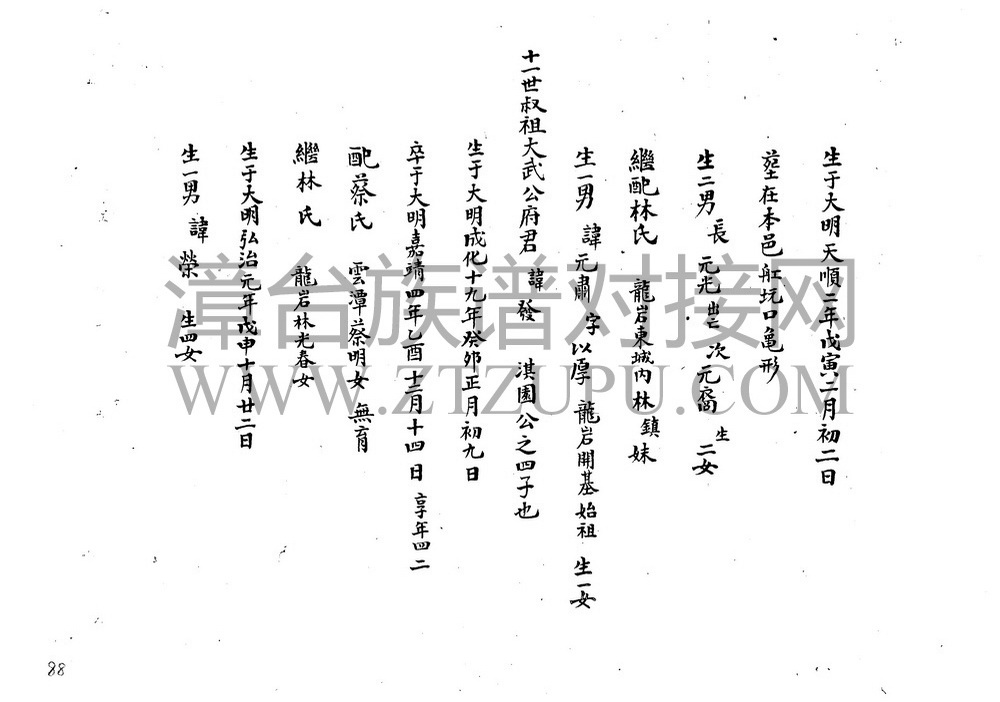 生于大明天順二年戊寅二月初二日
墓在本邑舡坑口龜形
生二男 長 元光 出亡 次元裔 生 二女
繼配林氏 龍岩東城內林鎮妹
生一男 諱元肅 字以厚 龍岩開基始祖 生一女
十一世叔祖大武公府君 諱發 淇園公之四子也
生于大明成化十九年癸卯正月初九日
卒于大明嘉靖四年乙酉十二月十四日 享年四二
配蔡氏 雲潭蔡明女 無育
繼林氏 龍岩林光春女
生于大明弘治元年戊申十月廿二日
生一男 諱榮 生四女
漳台族谱对接网
WWW.ZTZUPU.COM
88